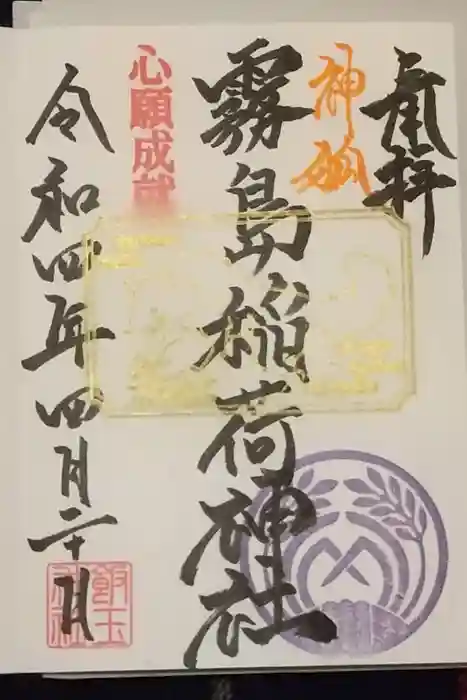 奉拝
神狐
霧島稲荷神社
心願成就
令和四年四月二十日
飯玉神社